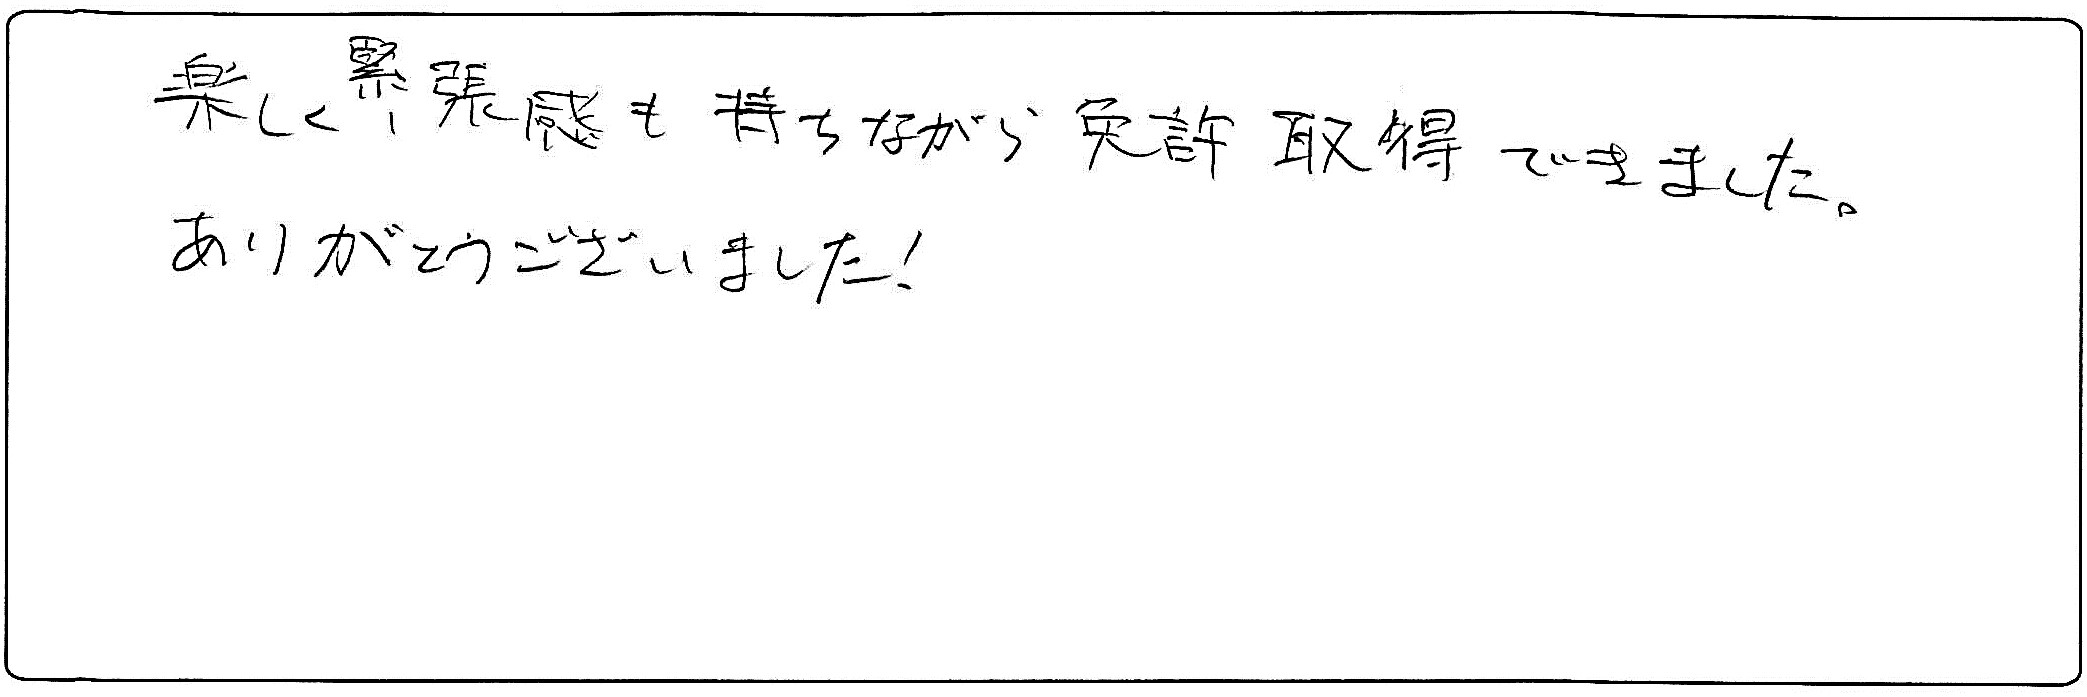 楽しく緊張感も持ちながら免許取得できました。
ありがとうございました!